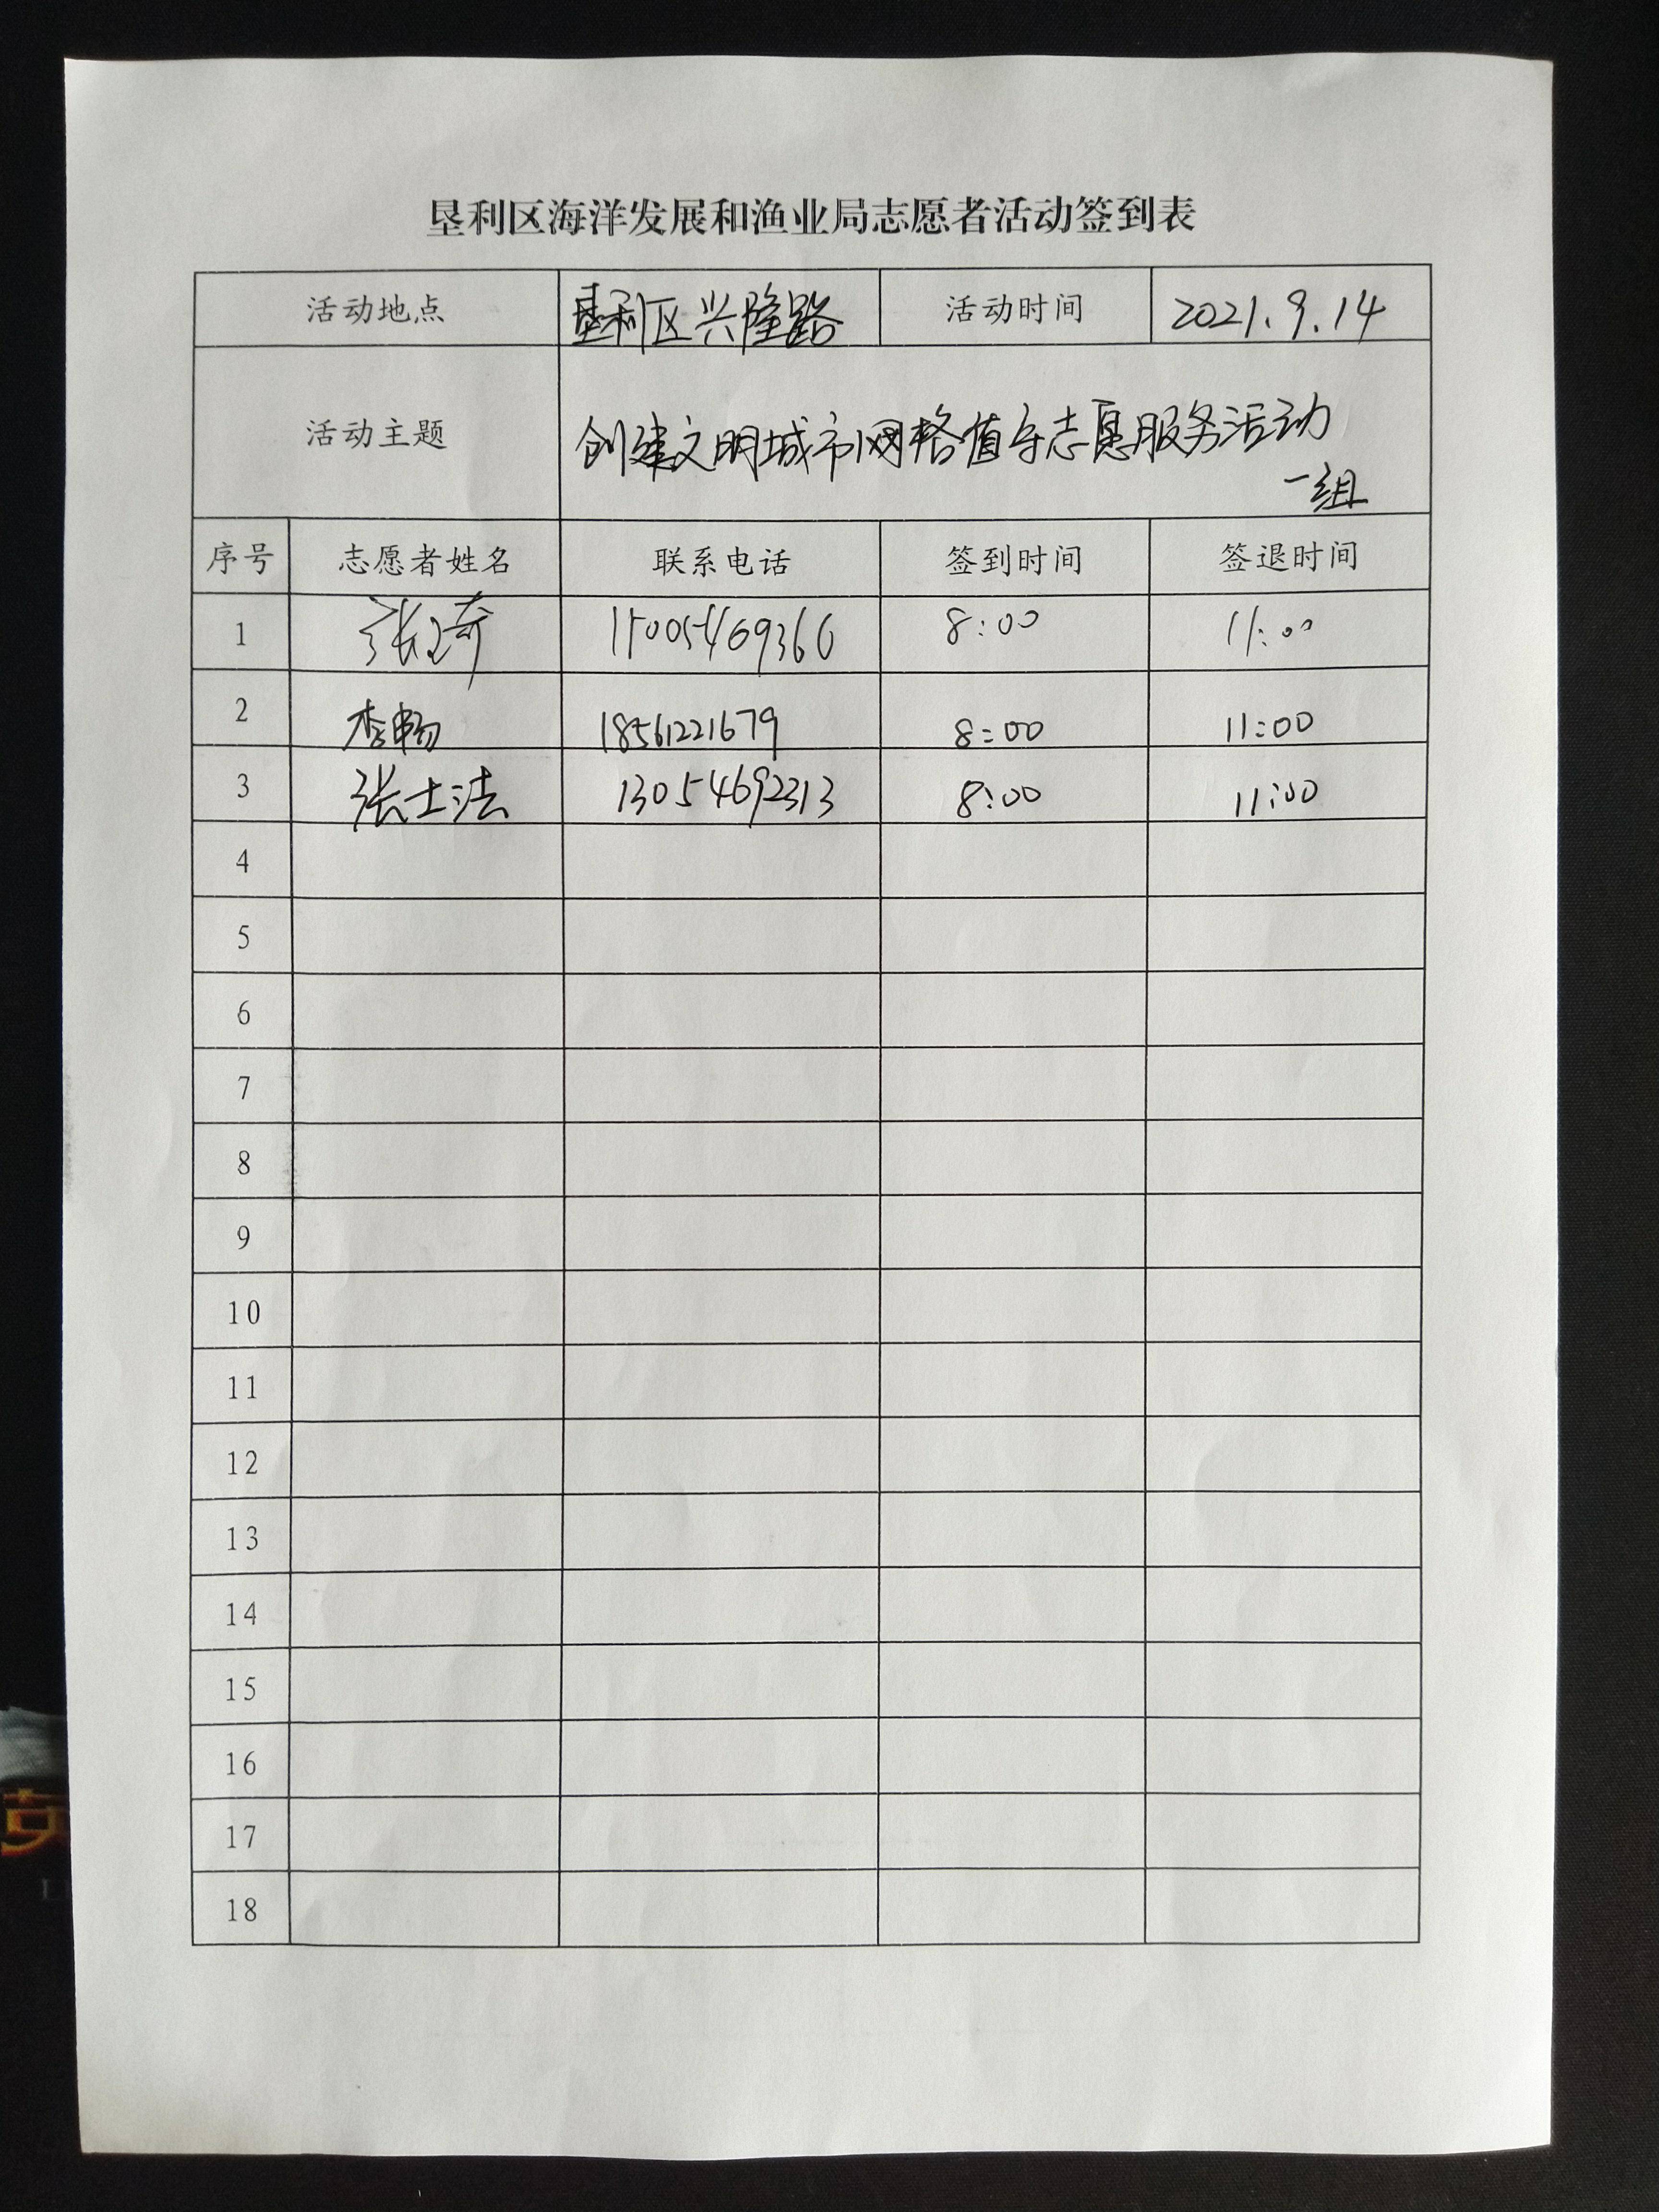 垦利区海洋发展和渔业局志愿者活动签到表
活动地点 垦利区兴隆路 活动时间 2021.9.14
活动主题 创建文明城市网格值守志愿服务活动
一组
序号 志愿者姓名 联系电话 签到时间 签退时间
1 15005469366 8:00 11:00
2 李畅 18561221679 8:00 11:00
3 张士法 13054692313 8:00 11:00
4
5
6
7
8
9
10
11
12
13
14
15
16
17
18